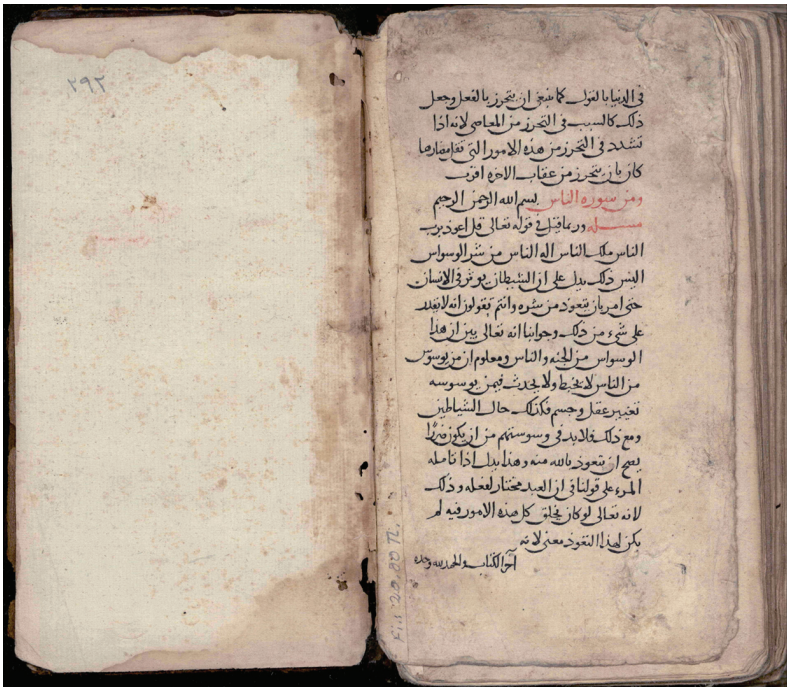 في الدنيا بالقول كما ينبغي ان يتحرز بالفعل وجعل
ذلك كالسبب في التحرز من المعاصي لانه اذا
تشدد في التحرز من هذه الامور التي تقل مضارها
كان بان يتحرز من عقاب الاخره اقرب
ومن سوره الناس بسم الله الرحمن الرحيم
مسله وربما قيل في قوله تعالى قل اعوذ برب
الناس ملك الناس اله الناس من شر الوسواس
اليس ذلك يدل على ان الشيطان يوثر في الانسان
حتى امر بان يتعوذ من شره وانتم تقولون انه لا يقدر
على شيء من ذلك وجوابنا انه تعالى بين ان هذا
الوسواس من الجنه والناس ومعلوم ان من يوسوس
من الناس لا يخبط ولا يحدث فيمن يوسوسه
تغيير عقل وجسم فكذلك حال الشياطين
ومع ذلك فلا بد في وسوستهم من ان يكون ضررًا
يصح ان يتعوذ بالله منه وهذا يدل اذا تامله
المرء على قولنا في ان العبد مختار لفعله وذلك
لانه تعالى لو كان يخلق كل هذه الامور فيه لم
يكن لهذا التعوذ معنى لانه
آخر الكتاب والحمد لله وحده
٢٩٢
20.80